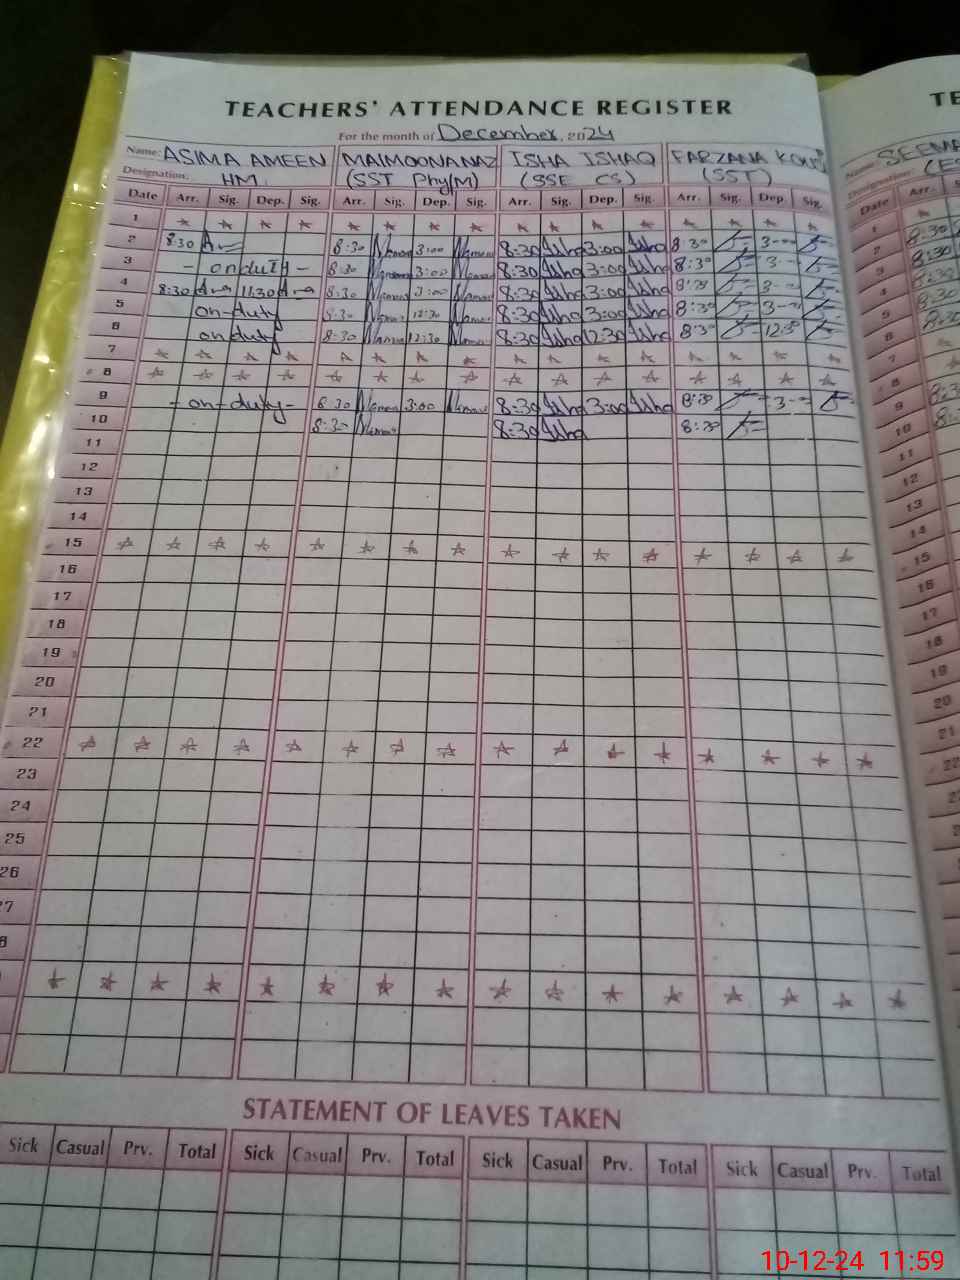 TEACHERS' ATTENDANCE REGISTER
For the month of December, 2024
Name: ASIMA AMEEN MAIMOONA NAZ ISHA ISHAQ FARZANA
Designation: HM (SST Phy/M) (SSE CS) (SST)
Date Arr. Sig. Dep. Sig. Arr. Sig. Dep. Sig. Arr. Sig. Dep. Sig. Arr. Sig. Dep. Sig.
1
2 8:30 8:30 3:00 8:30 Isha 3:00 Isha 8:30 3-
3 - on duty - 8:30 3:00 8:30 Isha 3:00 Isha 8:30 3-
4 8:30 11:30 8:30 3:00 8:30 Isha 3:00 Isha 8:30 3-
5 on-duty 8:30 12:30 8:30 Isha 3:00 Isha 8:30 3-
6 on duty 8:30 12:30 8:30 Isha 12:30 Isha 8:30 12:30
7
8
9 - on-duty - 8:30 3:00 8:30 Isha 3:00 Isha 8:30 3-
10 8:30 8:30 Isha 8:30
11
12
13
14
15
16
17
18
19
20
21
22
23
24
25
26
27
8
STATEMENT OF LEAVES TAKEN
Sick Casual Prv. Total Sick Casual Prv. Total Sick Casual Prv. Total Sick Casual Prv. Total
TE
Name: SEEMA
Designation:
Date Arr.
1
2 8:30
3 8:30
4 8:30
5 8:30
6 8:30
7
8
9 8:30
10 8:30
11
12
13
14
15
16
17
18
19
20
21
22
10-12-24 11:59